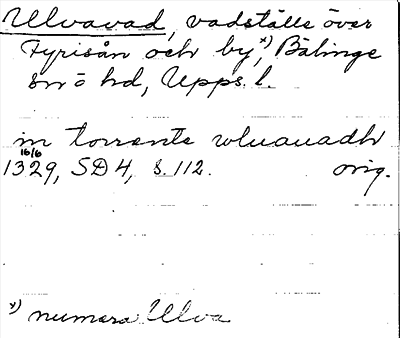 Ulvavad, vadställe över
Fyrisån och by, x) Bälinge
sn o hd, Upps. l.
in torrente wluauadh
16/6
1329, SD 4, s. 112. orig.
x) numera Ulva